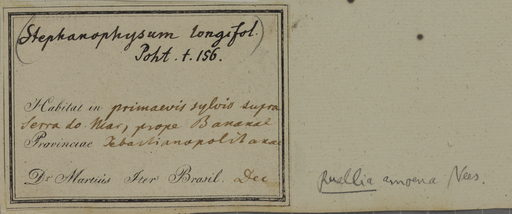 (Stephanophysum longifol.)
Pohl. t. 156.
Habitat in primaevis sylvis supra
Serra do Mar, prope Bananal
Provinciae Sebastianopolitanae
Dr. Martius Iter Brasil. Dec
Ruellia amoena Nees.